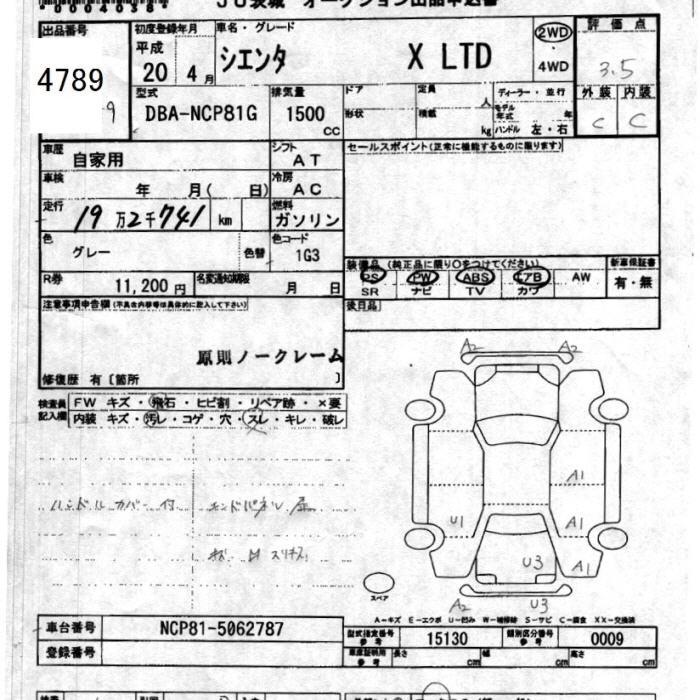 00040358
JU茨城 オークション出品申込書
出品番号 4789
9
初度登録年月 平成 20 4月
車名・グレード シエンタ X LTD
2WD ・ 4WD
評価点 3.5
外装 内装
C C
型式 DBA-NCP81G
排気量 1500 CC
ドア 定員 人 ディーラー・並行
形状 積載 kg モデル年式 年
ハンドル 左・右
車歴 自家用
シフト AT
セールスポイント(正常に機能するものに限ります)
車検 年 月( 日)
冷房 AC
走行 19万2千741km
燃料 ガソリン
色 グレー 色替
色コード 1G3
装備品(純正品に限り○をつけてください)
新車保証書
PS PW ABS エアB AW 有・無
SR ナビ TV カワ
R券 11,200円
名変通知期限 月 日
後日品
注意事項申告欄(不具合内容等は具体的に記入して下さい)
原則ノークレーム
修復歴 有〔箇所 〕
検査員記入欄
FW キズ・飛石・ヒビ割・リペア跡・×要
内装 キズ・汚レ・コゲ・穴・スレ・キレ・破レ
ハンドルカバー付
A2 A2
A1
U1 A1
U3 A1
A2 U3
スペア
A-キズ E-エクボ U-凹み W-補修跡 S-サビ C-腐食 XX-交換済
車台番号 NCP81-5062787
型式指定番号参考 15130 類別区分番号参考 0009
登録番号
車庫証明用参考 長さ cm 幅 cm 高さ cm